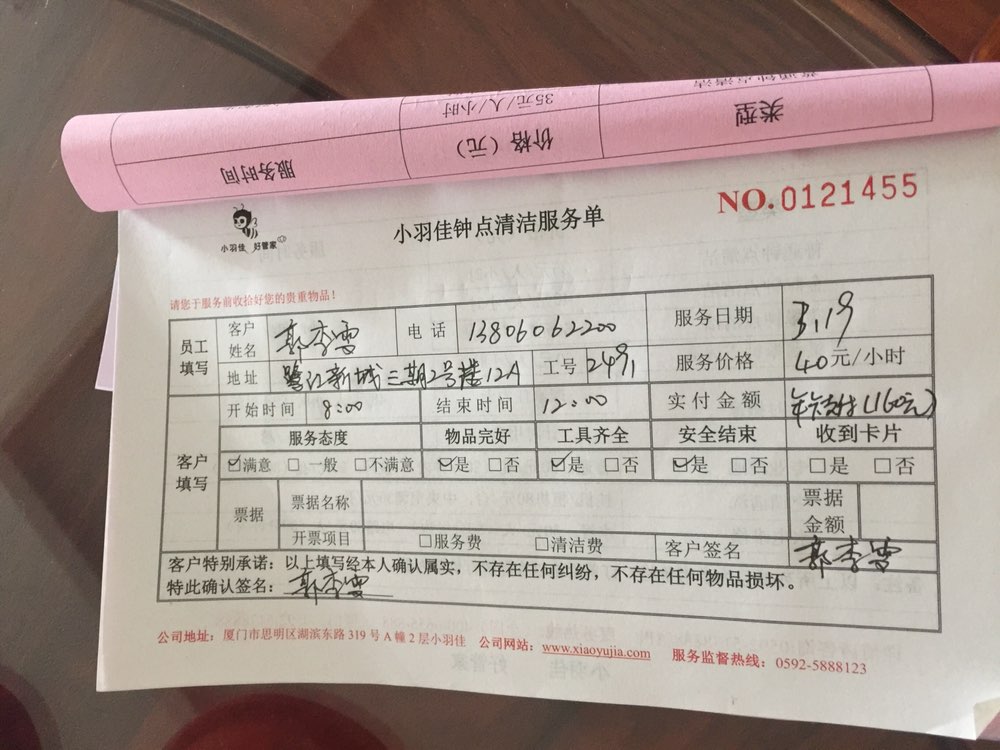 普通钟点清洁
35元/人/小时
类型
价格（元）
服务时间
NO.0121455
小羽佳 好管家
小羽佳钟点清洁服务单
请您于服务前收拾好您的贵重物品！
员工填写 客户姓名 郭李雪 电话 13806062200 服务日期 3.19
地址 鹭江新城三期2号楼12A 工号 2491 服务价格 40元/小时
客户填写 开始时间 8:00 结束时间 12:00 实付金额 年卡支付(160元)
服务态度 物品完好 工具齐全 安全结束 收到卡片
☑满意 □一般 □不满意 ☑是 □否 ☑是 □否 ☑是 □否 □是 □否
票据 票据名称 票据金额
开票项目 □服务费 □清洁费 客户签名 郭李雪
客户特别承诺：以上填写经本人确认属实，不存在任何纠纷，不存在任何物品损坏。
特此确认签名：郭李雪
公司地址：厦门市思明区湖滨东路319号A幢2层小羽佳 公司网站：www.xiaoyujia.com 服务监督热线：0592-5888123